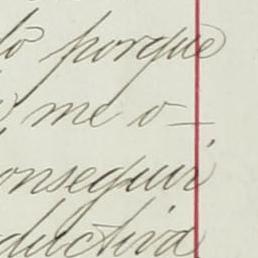 lo porque
me o-
onseguir
ductiva